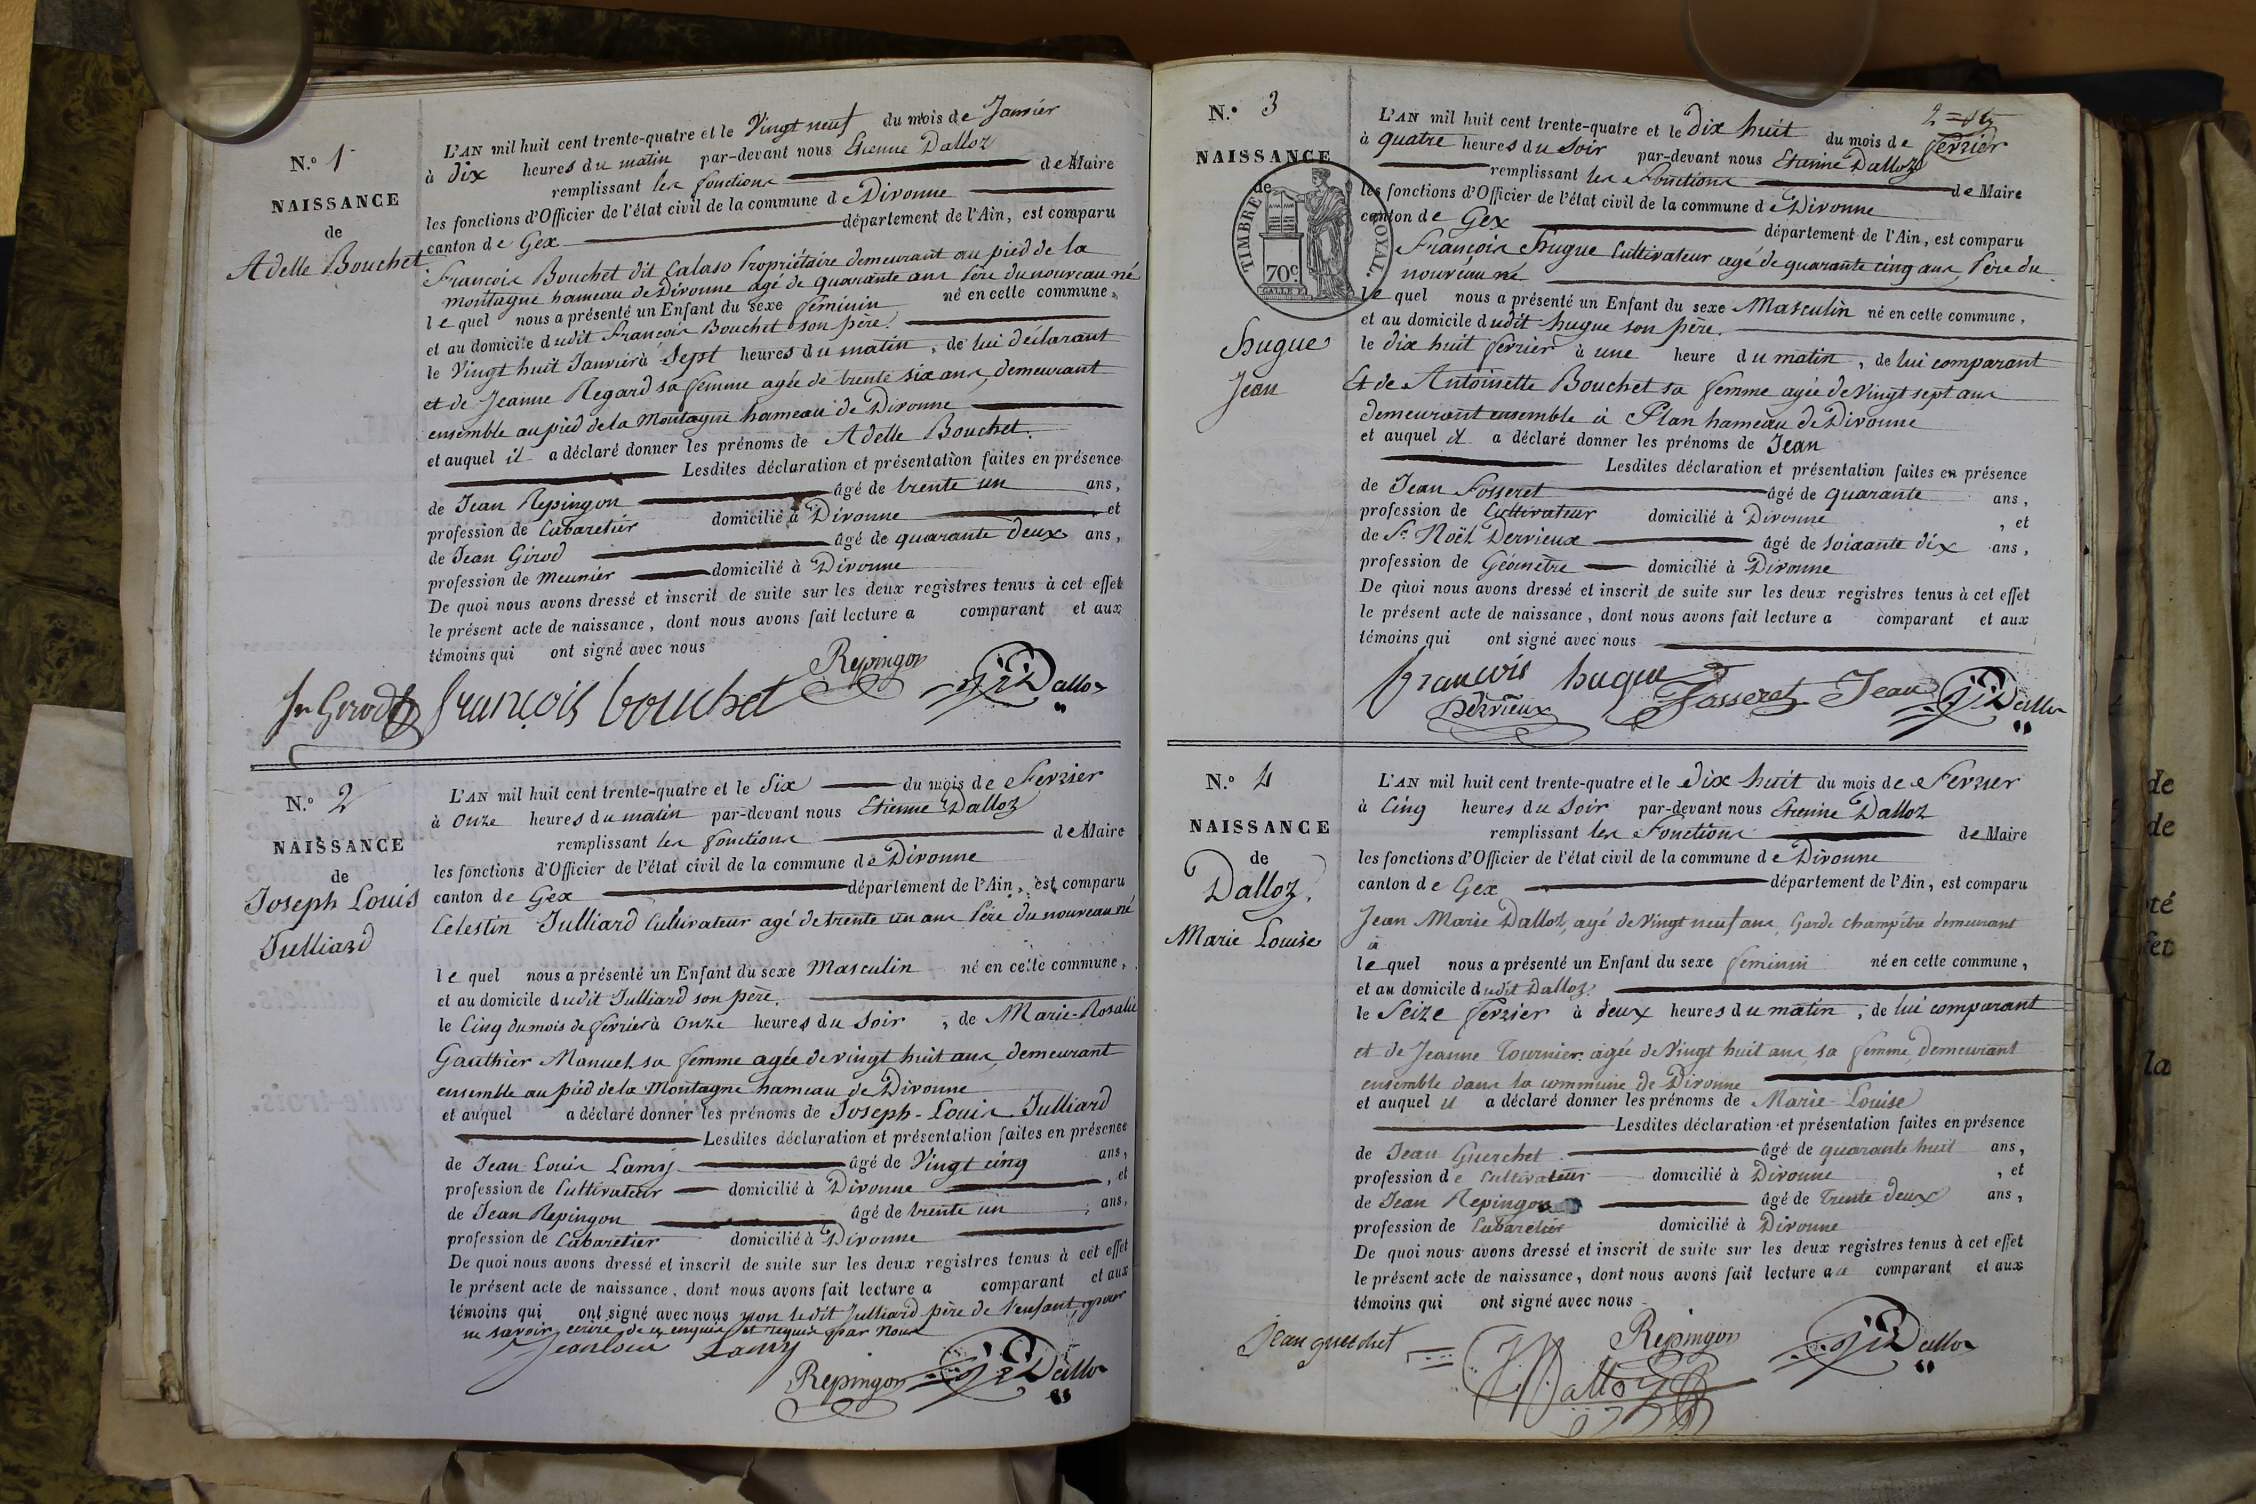 N.º 1
NAISSANCE
de
Adelle Bouchet
L'AN mil huit cent trente-quatre et le Vingt neuf du mois de Janvier
à dix heures du matin par-devant nous Etienne Dalloz
remplissant les fonctions de Maire
les fonctions d'Officier de l'état civil de la commune de Divonne
canton de Gex département de l'Ain, est comparu
François Bouchet dit Calaso Propriétaire demeurant au pied de la
montagne hameau de Divonne agé de quarante ans Père du nouveau né
lequel nous a présenté un Enfant du sexe féminin né en cette commune,
et au domicile dudit François Bouchet son père.
le Vingt huit Janvier à Sept heures du matin, de lui déclarant
et de Jeanne Regard sa femme agée de trente six ans, demeurant
ensemble au pied de la Montagne hameau de Divonne
et auquel il a déclaré donner les prénoms de Adelle Bouchet.
Lesdites déclaration et présentation faites en présence
de Jean Repingon âgé de trente un ans,
profession de Cabaretier domicilié à Divonne et
de Jean Girod âgé de quarante deux ans,
profession de meunier domicilié à Divonne
De quoi nous avons dressé et inscrit de suite sur les deux registres tenus à cet effet
le présent acte de naissance, dont nous avons fait lecture a comparant et aux
témoins qui ont signé avec nous
Jn Girod françois bouchet Repingon Dalloz
N.º 2
NAISSANCE
de
Joseph Louis
Julliard
L'AN mil huit cent trente-quatre et le Six du mois de Fevrier
à onze heures du matin par-devant nous Etienne Dalloz
remplissant les fonctions de Maire
les fonctions d'Officier de l'état civil de la commune de Divonne
canton de Gex département de l'Ain, est comparu
Celestin Julliard Cultivateur agé de trente un ans Père du nouveau né
lequel nous a présenté un Enfant du sexe Masculin né en cette commune,
et au domicile dudit Julliard son père.
le Cinq du mois de fevrier à Onze heures du Soir, de Marie-Rosalie
Gauthier Manuel sa femme agée de vingt huit ans, demeurant
ensemble au pied de la Montagne hameau de Divonne
et auquel a déclaré donner les prénoms de Joseph-Louis Julliard
Lesdites déclaration et présentation faites en présence
de Jean Louis Lamy âgé de Vingt cinq ans,
profession de Cultivateur domicilié à Divonne, et
de Jean Repingon âgé de trente un ans,
profession de Cabaretier domicilié à Divonne
De quoi nous avons dressé et inscrit de suite sur les deux registres tenus à cet effet
le présent acte de naissance, dont nous avons fait lecture a comparant et aux
témoins qui ont signé avec nous non ledit Julliard père de l'enfant, pour
ne savoir écrire de ce enquis et requis par nous
Jean louis Lamy
Repingon Dalloz
N.º 3
NAISSANCE
de
TIMBRE ROYAL.
70c
hugue
Jean
L'AN mil huit cent trente-quatre et le dix huit du mois de fevrier
à quatre heures du Soir par-devant nous Etienne Dalloz
remplissant les Fonctions de Maire
les fonctions d'Officier de l'état civil de la commune de Divonne
canton de Gex département de l'Ain, est comparu
François hugue Cultivateur agé de quarante cinq ans, Père du
nouveau né
lequel nous a présenté un Enfant du sexe Masculin né en cette commune,
et au domicile dudit hugue son père.
le dix huit fevrier à une heure du matin, de lui comparant
Et de Antoinette Bouchet sa femme agée de Vingt sept ans
demeurant ensemble à Plan hameau de Divonne
et auquel il a déclaré donner les prénoms de Jean
Lesdites déclaration et présentation faites en présence
de Jean Fosseret âgé de quarante ans,
profession de Cultivateur domicilié à Divonne, et
de Sr. Noël Dervieux âgé de soixante dix ans,
profession de Géomètre domicilié à Divonne
De quoi nous avons dressé et inscrit de suite sur les deux registres tenus à cet effet
le présent acte de naissance, dont nous avons fait lecture a comparant et aux
témoins qui ont signé avec nous
francois hugue Fosseret Jean Dalloz
Dervieux
N.º 4
NAISSANCE
de
Dalloz,
Marie Louise
L'AN mil huit cent trente-quatre et le dix huit du mois de Fevrier
à Cinq heures du Soir par-devant nous Etienne Dalloz
remplissant les Fonctions de Maire
les fonctions d'Officier de l'état civil de la commune de Divonne
canton de Gex département de l'Ain, est comparu
Jean Marie Dalloz, agé de Vingt neuf ans, Garde champêtre demeurant
à
lequel nous a présenté un Enfant du sexe feminin né en cette commune,
et au domicile dudit Dalloz.
le Seize Fevrier à deux heures du matin, de lui comparant
et de Jeanne Tournier agée de Vingt huit ans, sa femme, demeurant
ensemble dans la commune de Divonne
et auquel il a déclaré donner les prénoms de Marie-Louise
Lesdites déclaration et présentation faites en présence
de Jean Guerchet âgé de quarante huit ans,
profession de Cultivateur domicilié à Divonne, et
de Jean Repingon âgé de Trente deux ans,
profession de Cabaretier domicilié à Divonne
De quoi nous avons dressé et inscrit de suite sur les deux registres tenus à cet effet
le présent acte de naissance, dont nous avons fait lecture au comparant et aux
témoins qui ont signé avec nous
Jean guerchet Repingon Dalloz
Dalloz
de
de
té
et
la